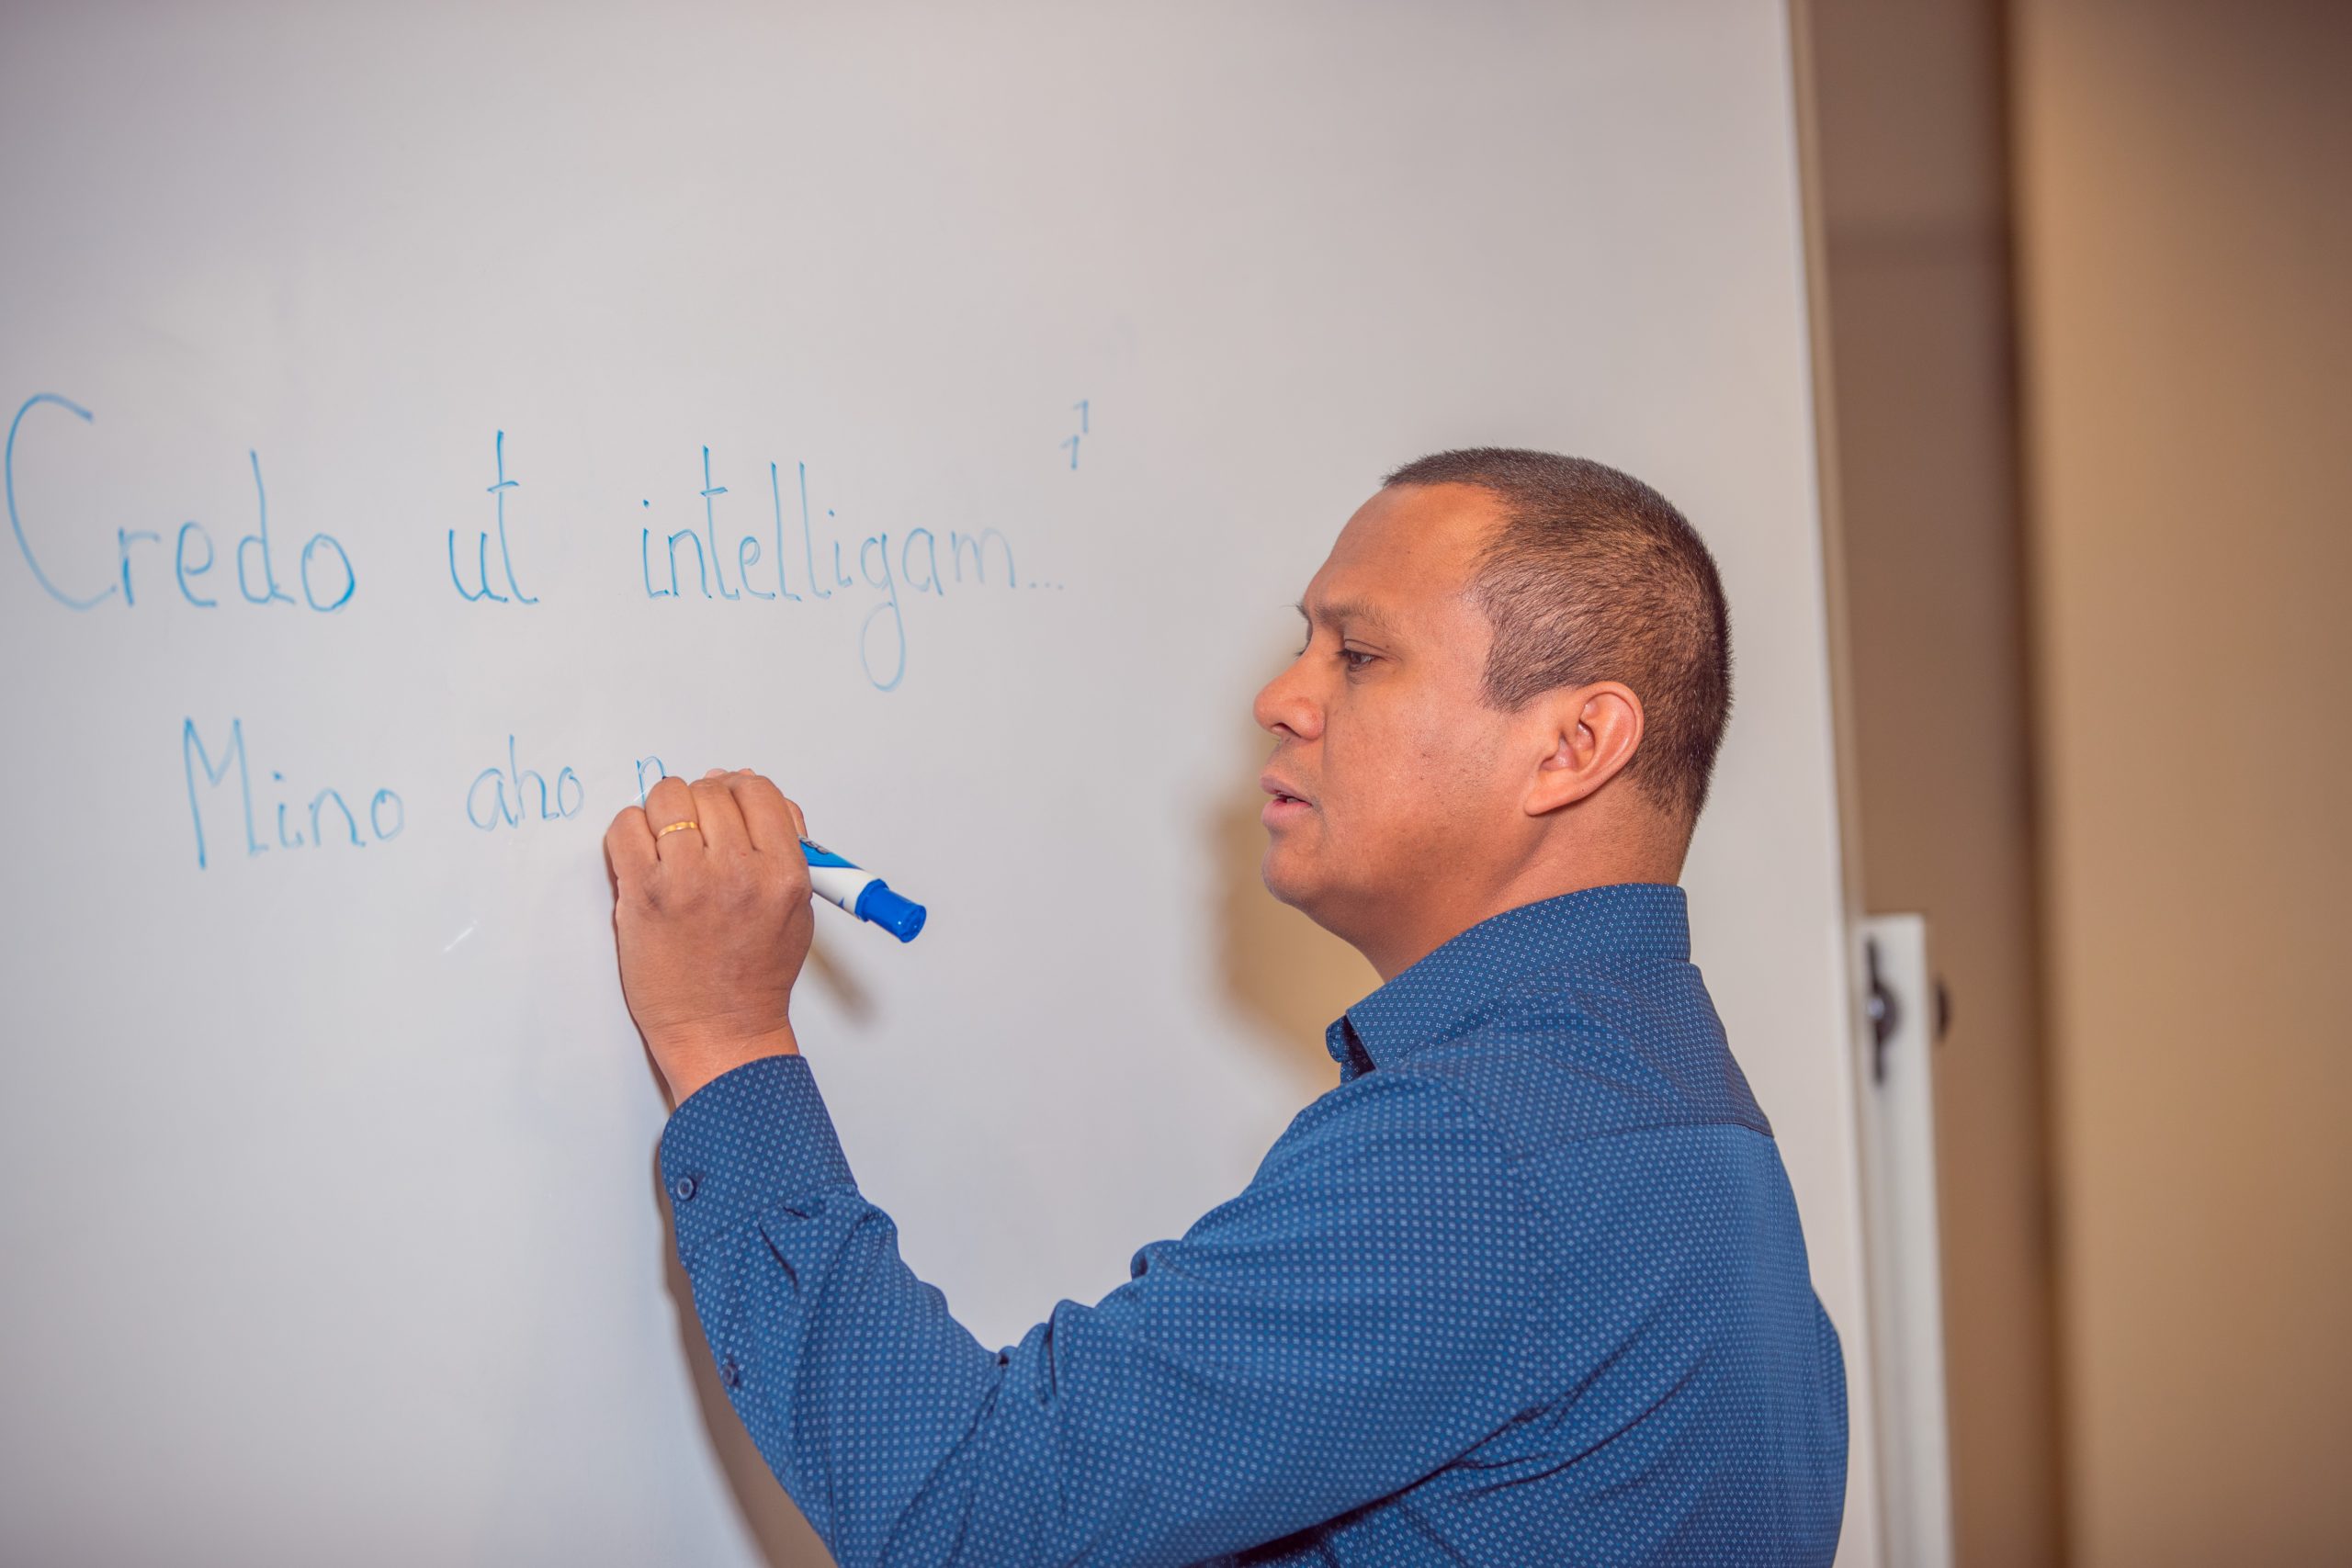 Credo ut intelligam...
Mino aho